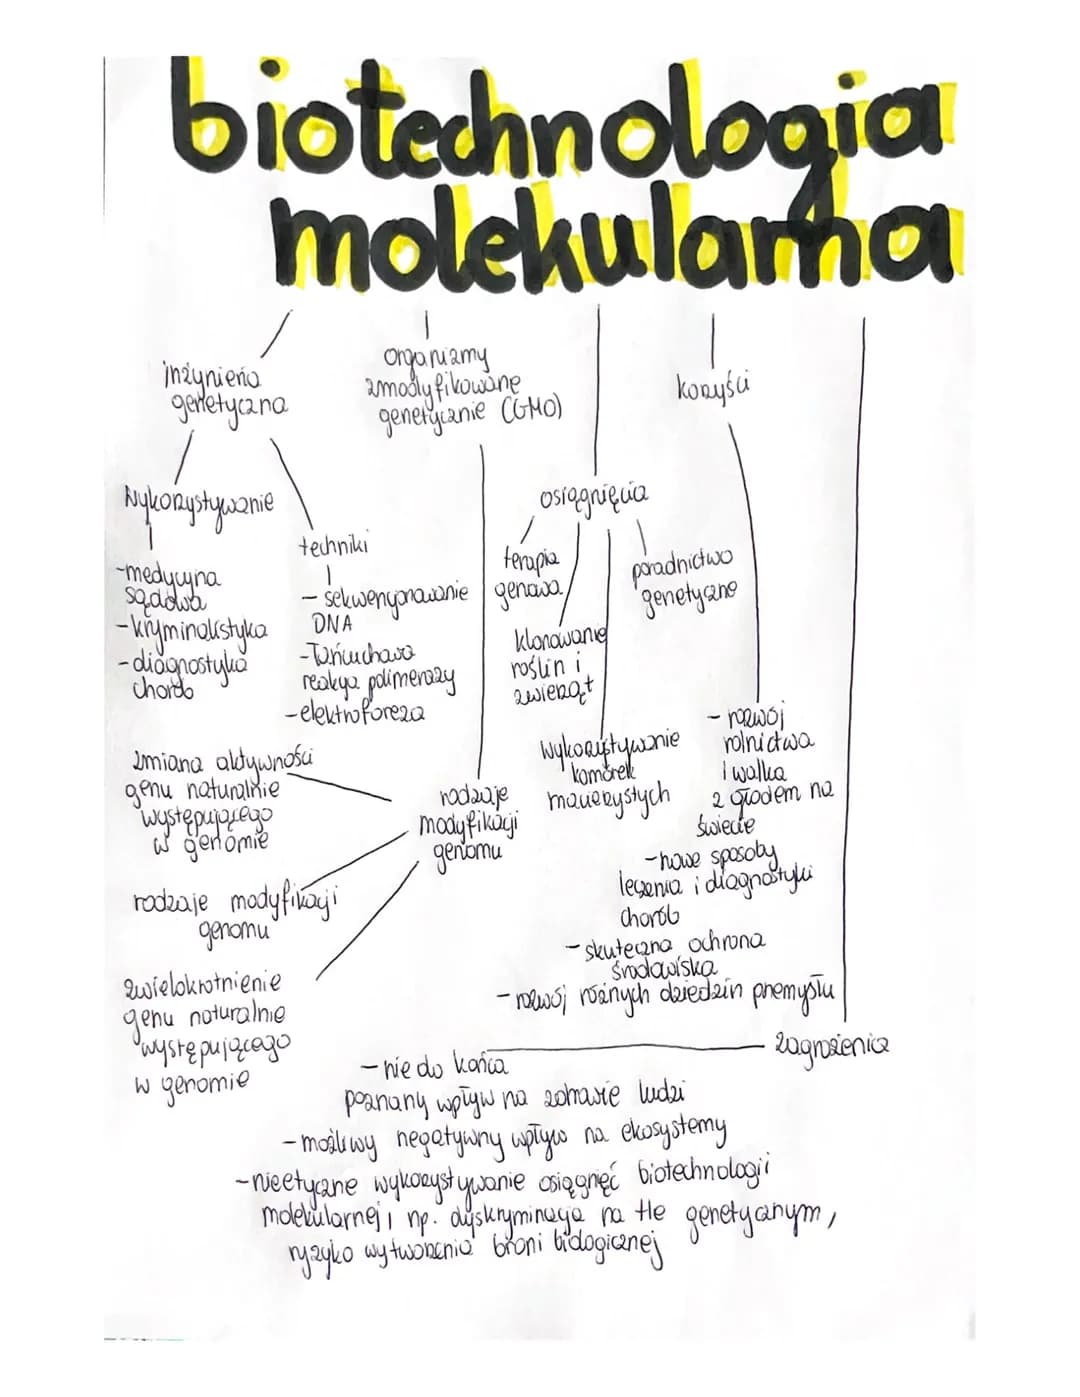 biotechnologia
molekularna
inżynieria
genetyczna
organizmy
zmodyfikowane
genetycznie (GMO)
korzyści
Wykorzystywanie
-medycyna
sądowa
-kryminalistyka
-diagnostyka
chorób
techniki
- sekwencjonowanie
DNA
-Łańcuchowa
reakcja polimerazy
-elektroforeza
osiągnięcia
terapia
genowa
poradnictwo
genetyczne
klonowanie
roślin i
zwierząt
wykorzystywanie
komórek
macierzystych
- rozwój
rolnictwa
i walka
z głodem na
świecie
-nowe sposoby
leczenia i diagnostyki
chorób
-skuteczna ochrona
środowiska
- rozwój różnych dziedzin przemysłu
rodzaje
modyfikacji
genomu
zmiana aktywności
genu naturalnie
występującego
w genomie
rodzaje modyfikacji
genomu
zwielokrotnienie
genu naturalnie
występującego
w genomie
zagrożenia
-nie do końca
poznany wpływ na zdrowie ludzi
-możliwy negatywny wpływ na ekosystemy
-nieetyczne wykorzystywanie osiągnięć biotechnologii
molekularnej, np. dyskryminacja na tle genetycznym,
ryzyko wytworzenia broni biologicznej